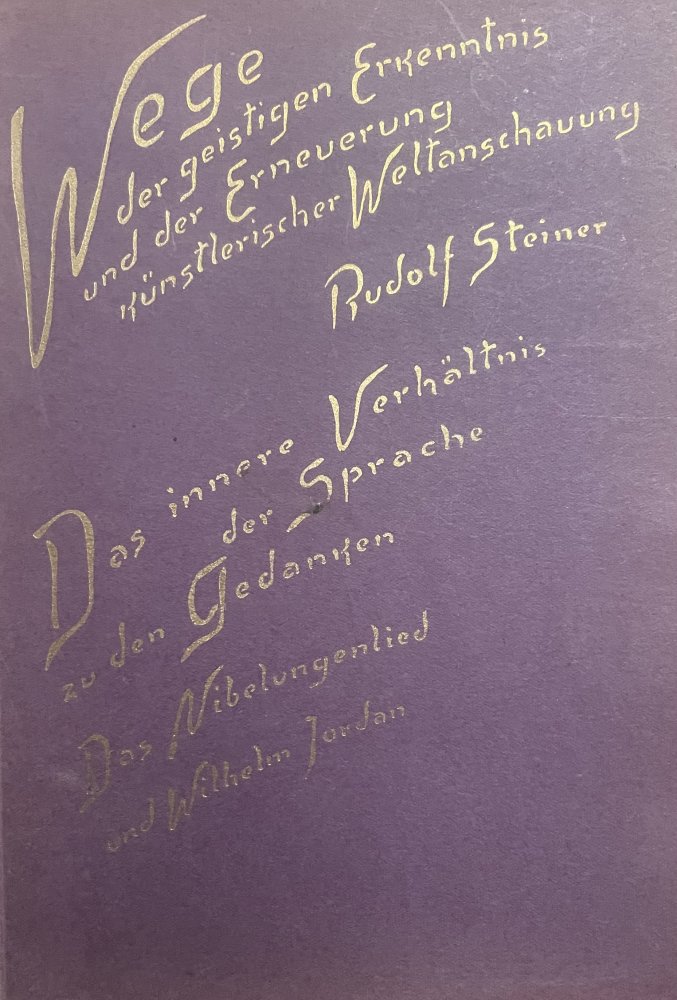 Wege
der geistigen Erkenntnis
und der Erneuerung
künstlerischer Weltanschauung
Rudolf Steiner
Das innere Verhältnis
der Sprache
zu den Gedanken
Das Nibelungenlied
und Wilhelm Jordan